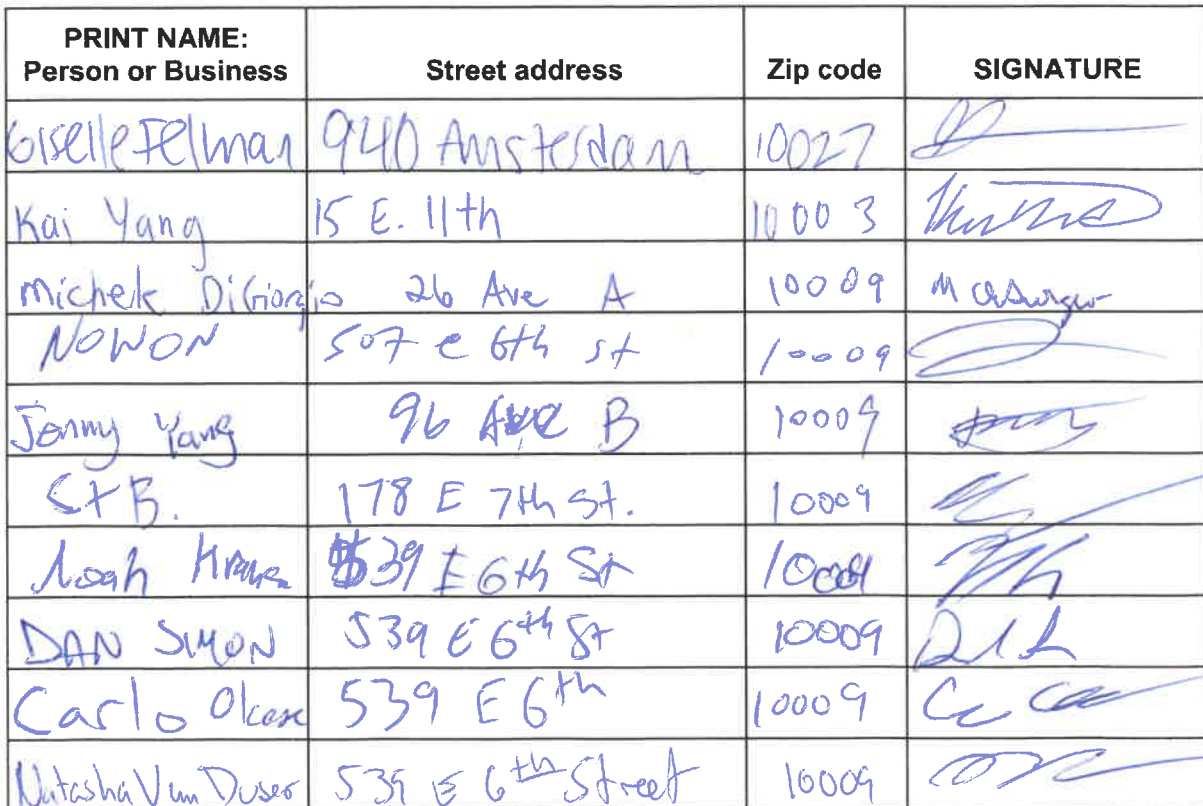 PRINT NAME: Person or Business Street address Zip code SIGNATURE
Giselle Felman 940 Amsterdam 10027
Kai Yang 15 E. 11th 10003
Michele DiGiorgio 26 Ave A 10009
NOWON 507 e 6th st 10009
Jenny Yang 96 Ave B 10009
178 E 7th St. 10009
Noah 539 E 6th St 10009
DAN SIMON 539 E 6th St 10009
Carlo 539 E 6th 10009
Natasha Van Duser 539 E 6th Street 10009